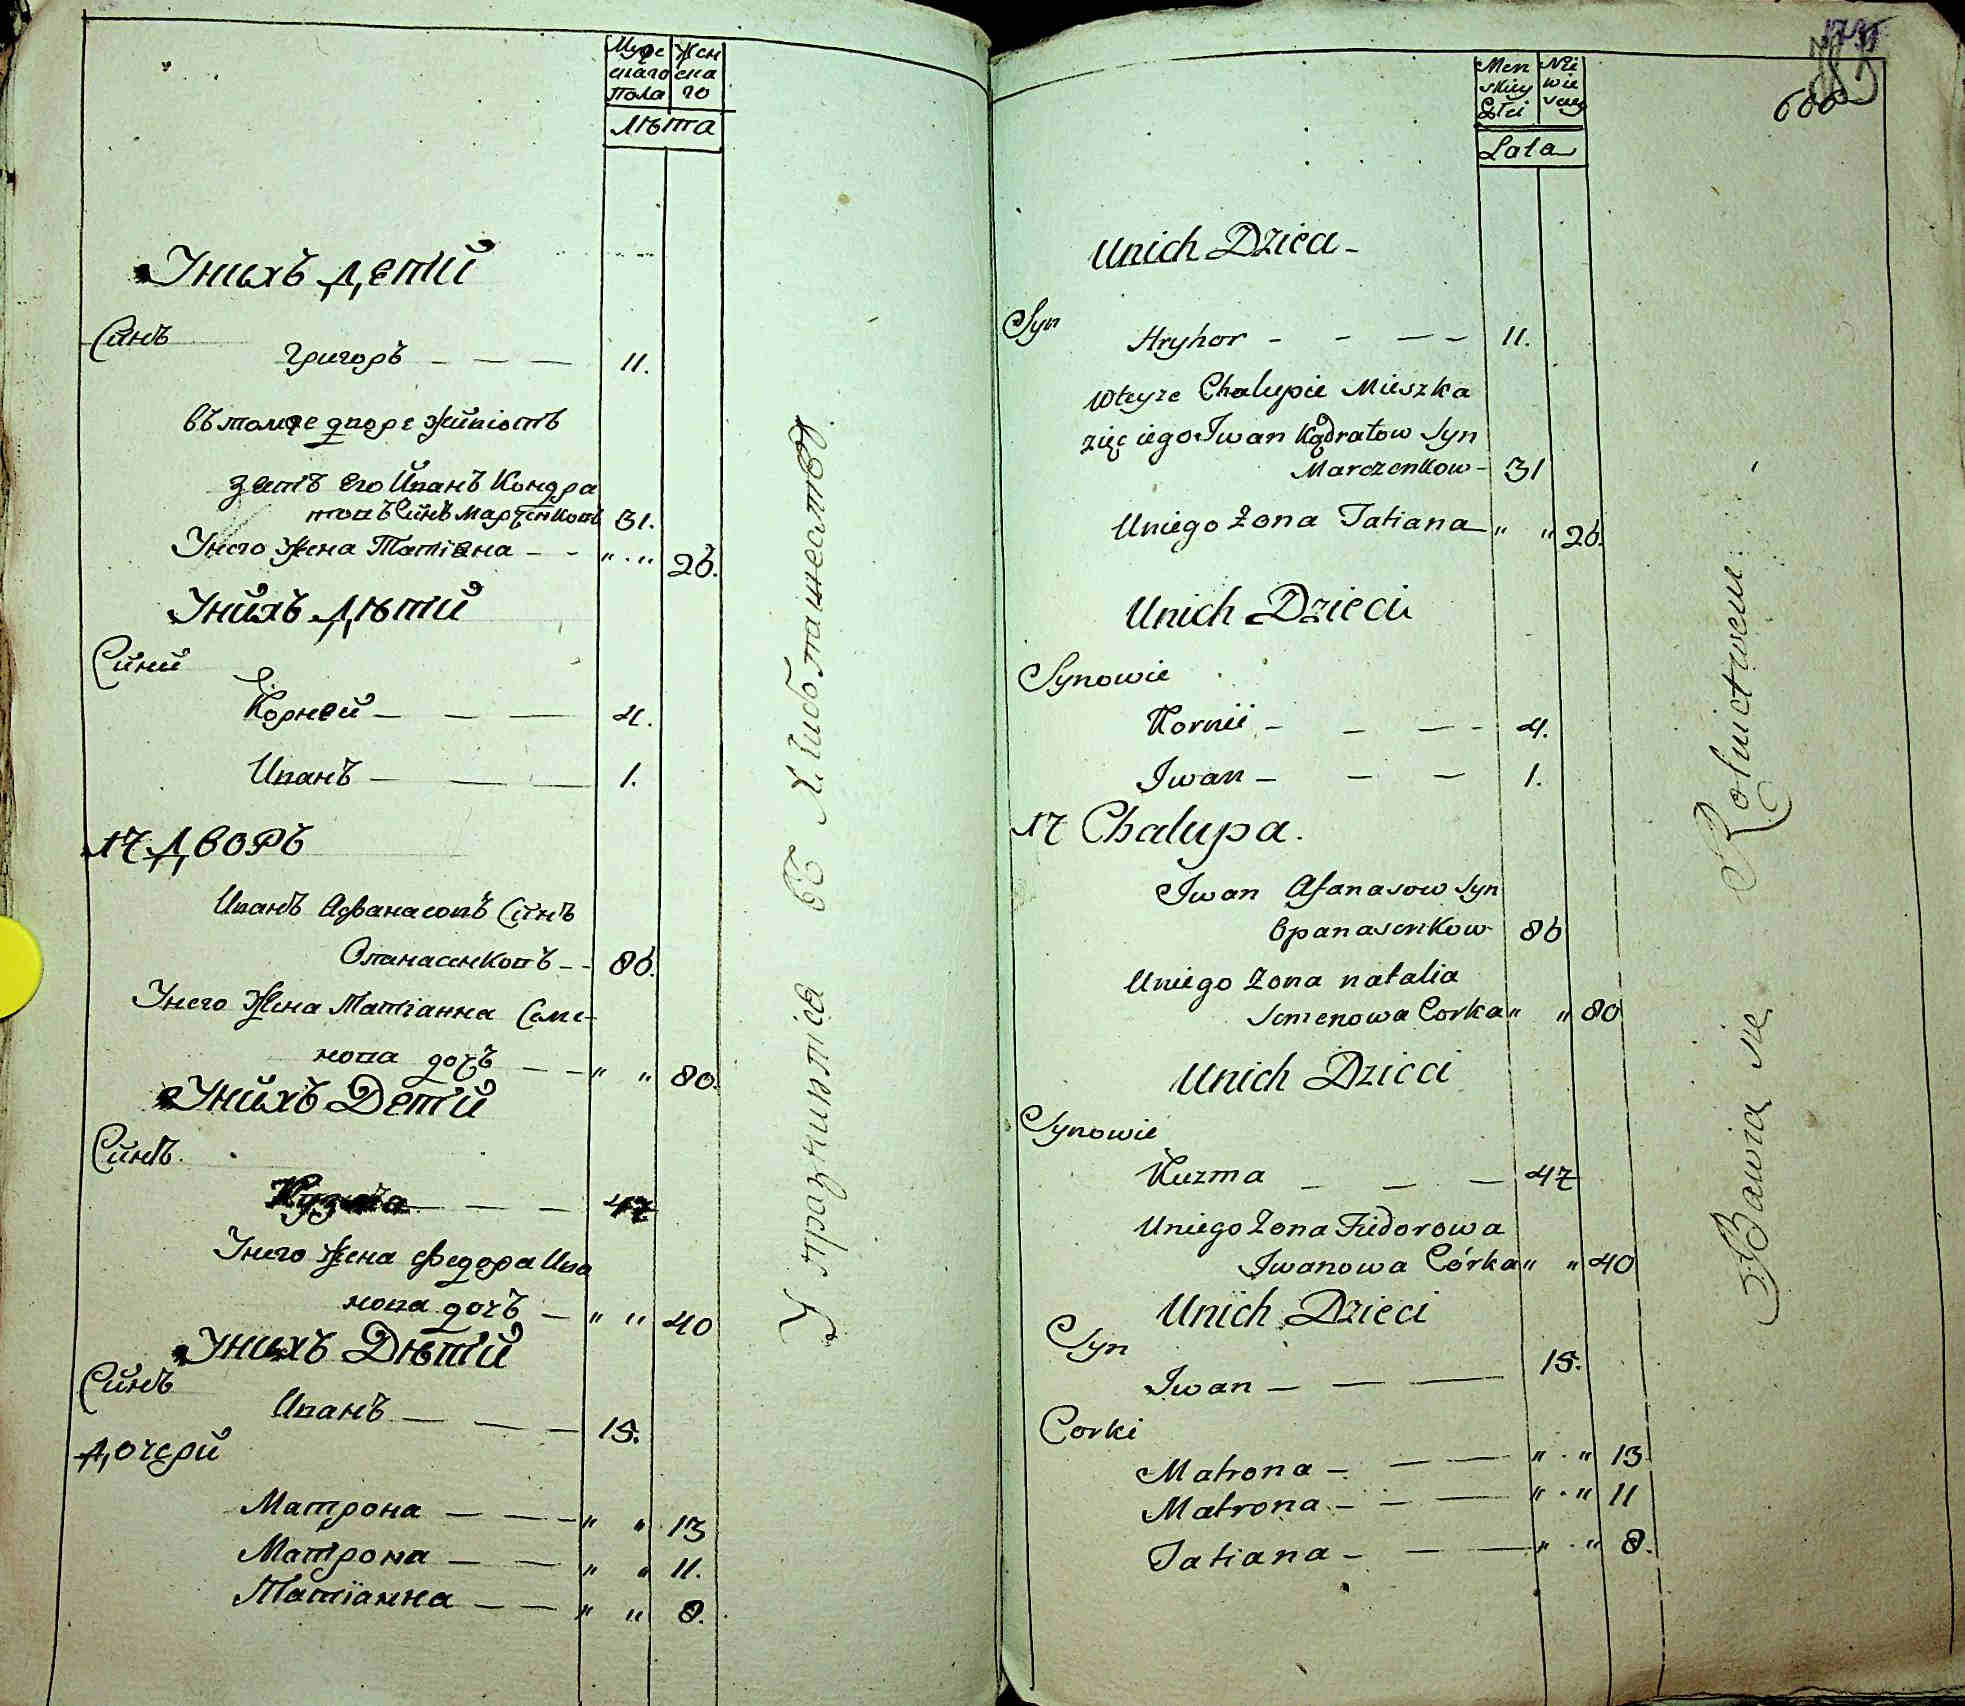 Муже Жен
скаго ска
пола го
Лѣта
Унихъ детй
Синъ
Григоръ — — — 11.
въ томже дворе жйвіотъ
зятъ его Йванъ Кондра
товъ Сйнъ Марченковъ 31.
Унего жена Татіана — - " . " 26.
Унйхъ дѣтй
Сйнй
Корней — — — 4.
Иванъ — — — 1.
17 дворъ
Иванъ Афанасовъ Сйнъ
Опанасенковъ — - 86.
Унего жена Натаіанна Семе-
нова дочъ — — " " 80.
Унйхъ Детй
Сйнъ.
Кузма — — — 47
Унего жена Федора Ива
нова дочъ — " " 40
Унихъ Дѣтй
Сйнъ
Иванъ — — — 15.
дочерй
Матрона — — — " " 13
Матрона — — — " " 11.
Татіанна — — " " 8.
Упражнинтся въ Хлибопашеством
606
Men Nie
skiey wie
Płci sciey
Lata
Unich Dzieci -
Syn
Hryhor - - — - 11.
Wteyze Chalupie Mieszka
zięc iego Iwan Kądratow Syn
Marczenkow - 31
Uniego Zona Tatiana — " " 26.
Unich Dzieci
Synowie
Kornii - — — - 4.
Iwan — — — 1.
17 Chalupa.
Iwan Afanasow Syn
Opanasenkow 86
Uniego Zona natalia
Semenowa Corka " " 80
Unich Dzieci
Synowie
Kuzma — — — 47
Uniego Zona Fiedorowa
Iwanowa Córka " " 40
Unich Dzieci
Syn
Iwan — — — 15.
Corki
Matrona - — — " . " 13.
Matrona - - — " . " 11
Tatiana - — — " . " 8.
Bawią się Rolnictwem